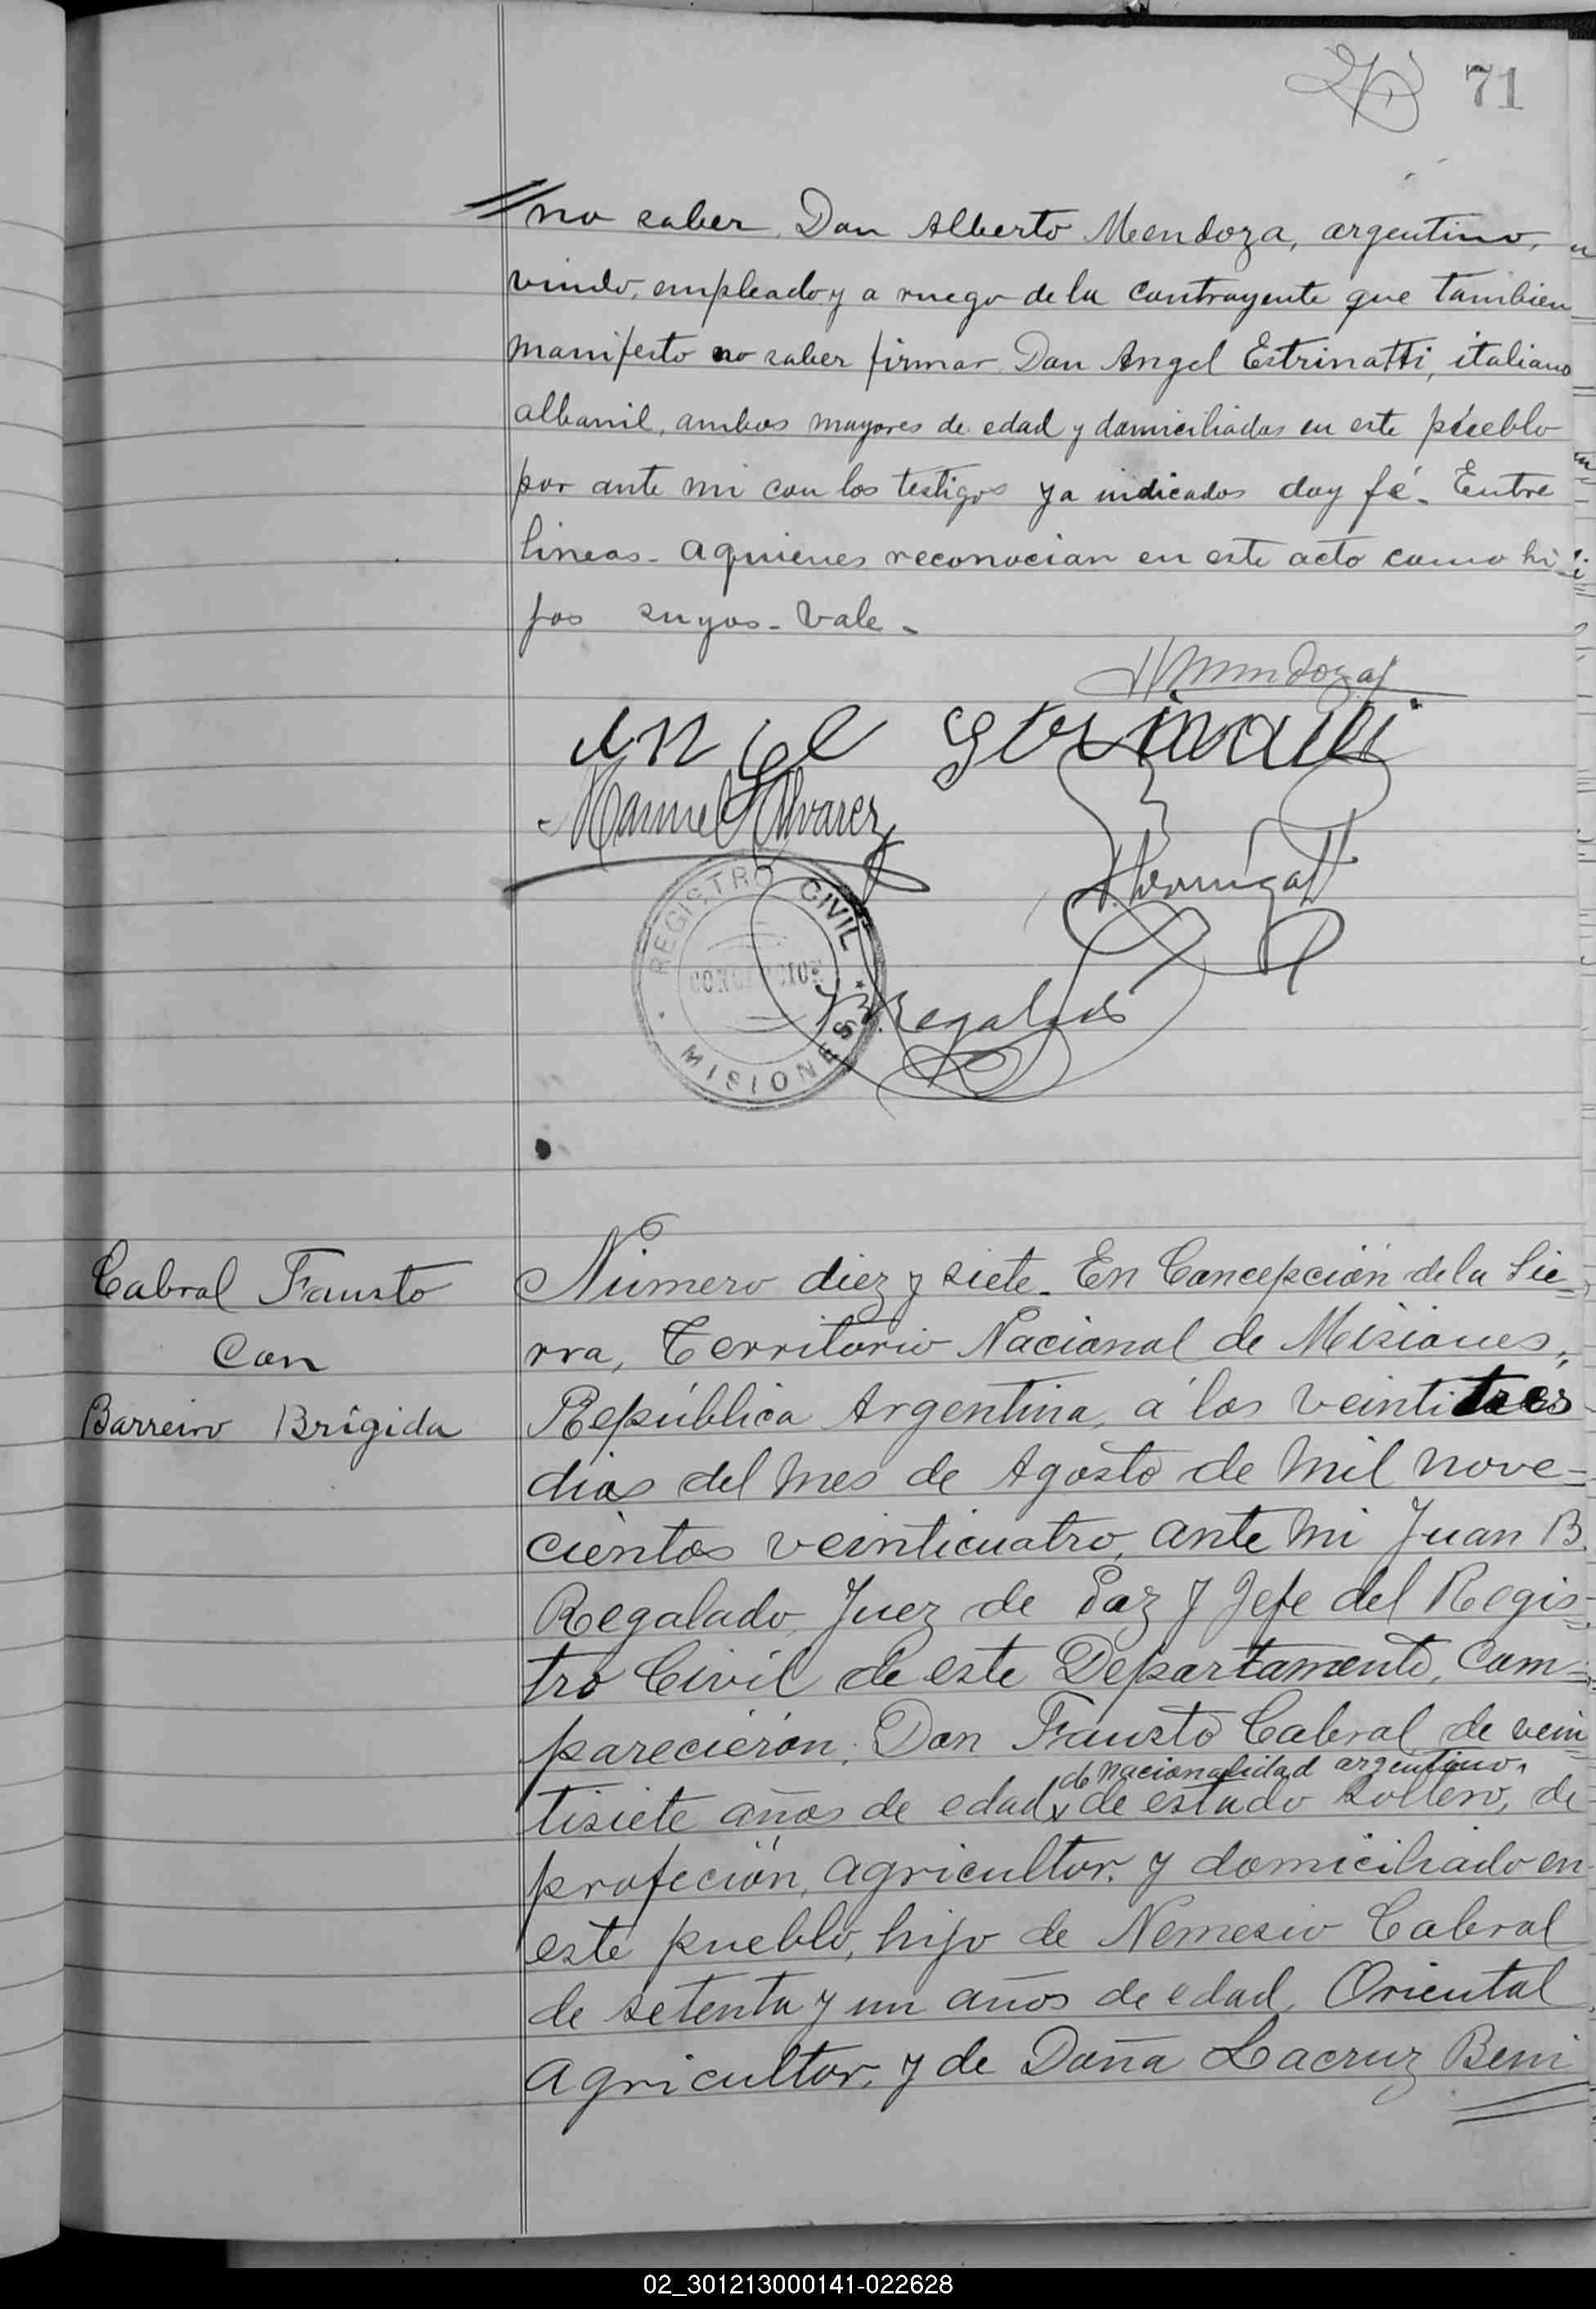 71
no saber, Don Alberto Mendoza, argentino,
viudo, empleado y a ruego de la contrayente que tambien
manifesto no saber firmar Don Angel Estrinatti, italiano
albanil, ambos mayores de edad y domiciliados en este pueblo
por ante mi con los testigos ya indicados doy fé. Entre
lineas - a quienes reconocian en este acto como hi
jos suyos - Vale -
Mendoza
Angel
Manuel Alvarez
REGISTRO CIVIL
CONCEPCION
MISIONES
Regalado
Cabral Fausto
Con
Barreiro Brígida
Número diez y siete. En Concepción de la Sie=
rra, Territorio Nacional de Misiones,
República Argentina, á los veintitres
dias del mes de Agosto de mil nove=
cientos veinticuatro, ante mi Juan B.
Regalado, Juez de Paz y Jefe del Regis=
tro Civil de este Departamento, Com=
parecieron: Don Fausto Cabral de vein
de nacionalidad argentino,
tisiete años de edad, de estado soltero, de
profeción, agricultor, y domiciliado en
este pueblo, hijo de Nemesio Cabral
de setenta y un años de edad, Oriental
agricultor, y de Doña Lacruz Beni
02_301213000141-022628